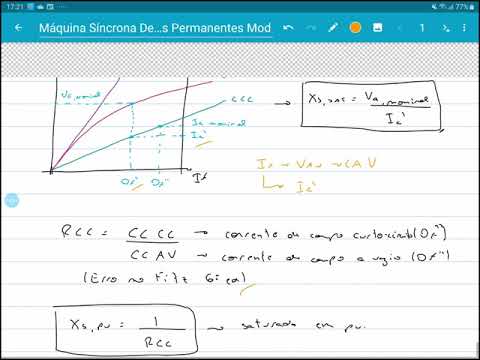 17:21
77%
Máquina Síncrona De...s Permanentes Mod
1
Va,nominal
CCC
Ia nominal
Ia'
Of' Of''
If
Xs,sat = Va,nominal / Ia'
If → Van → CAV
↳ Ia'
RCC = CCCC → corrente de campo curto-circuito (Of'')
CCAV → corrente de campo a vazio (Of')
(Erro no Fitz 6ª ed)
Xs,pu = 1 / RCC → saturado em pu.